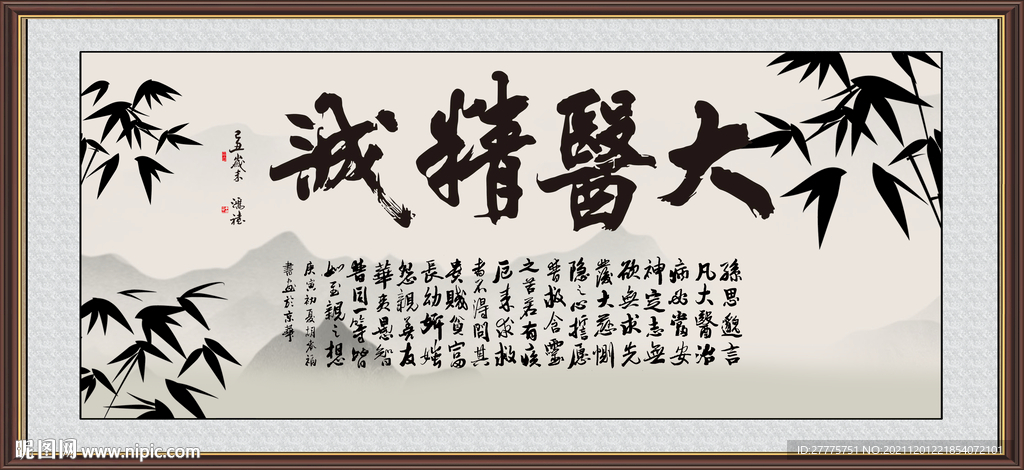 大醫精誠
孫思邈言
凡大醫治
病必當安
神定志無
欲無求先
發大慈惻
隱之心誓愿
普救含靈
之苦若有疾
厄来求救
者不得問其
貴賤貧富
長幼妍媸
怨親善友
華夷愚智
普同一等皆
如至親之想
庚寅初夏
書於京華
歲末
昵图网 www.nipic.com
ID:27775751 NO:20211201221854072101